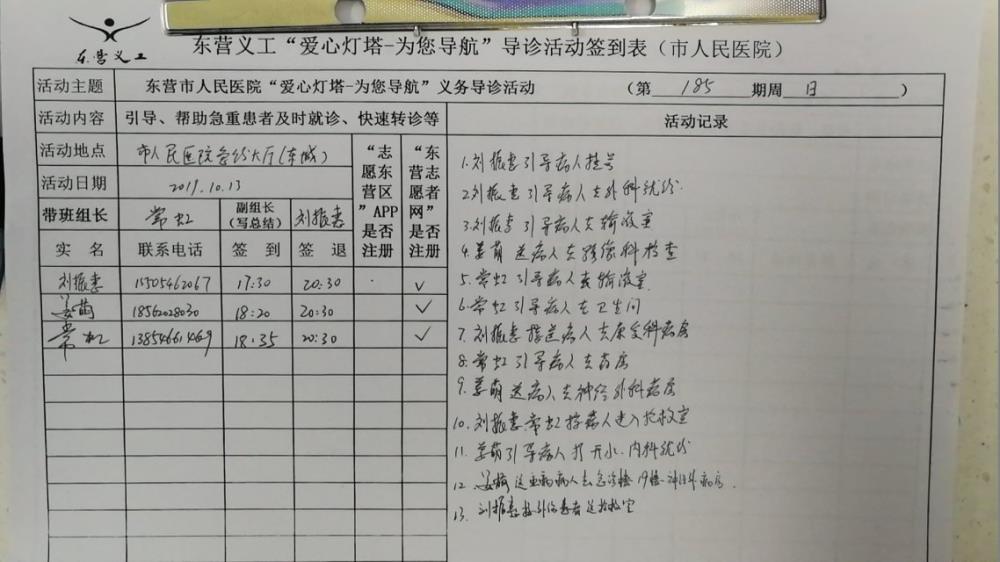 东营义工
东营义工“爱心灯塔-为您导航”导诊活动签到表（市人民医院）
活动主题 东营市人民医院“爱心灯塔-为您导航”义务导诊活动 （第 185 期周 日 ）
活动内容 引导、帮助急重患者及时就诊、快速转诊等
活动地点 市人民医院急诊大厅(东城)
活动日期 2019.10.13
“志愿东营区”APP是否注册
“东营志愿者网”是否注册
带班组长 常虹 副组长（写总结） 刘振惠
实名 联系电话 签到 签退
刘振惠 15505462067 17:30 20:30 ✓
姜萌 18562028030 18:20 20:30 ✓
常虹 13854661469 18:35 20:30 ✓
活动记录
1.刘振惠引导病人挂号
2.刘振惠引导病人去外科就诊.
3.刘振惠引导病人去输液室
4.姜萌送病人去影像科检查
5.常虹引导病人去输液室.
6.常虹引导病人去卫生间
7.刘振惠接送病人去康复科病房
8.常虹引导病人去药房
9.姜萌送病人去神经外科病房
10.刘振惠常虹接病人进入抢救室
11.姜萌引导病人打开水.内科就诊
12 姜萌送重病病人去急诊楼 神经外病房.
13.刘振惠接外伤患者送抢救室